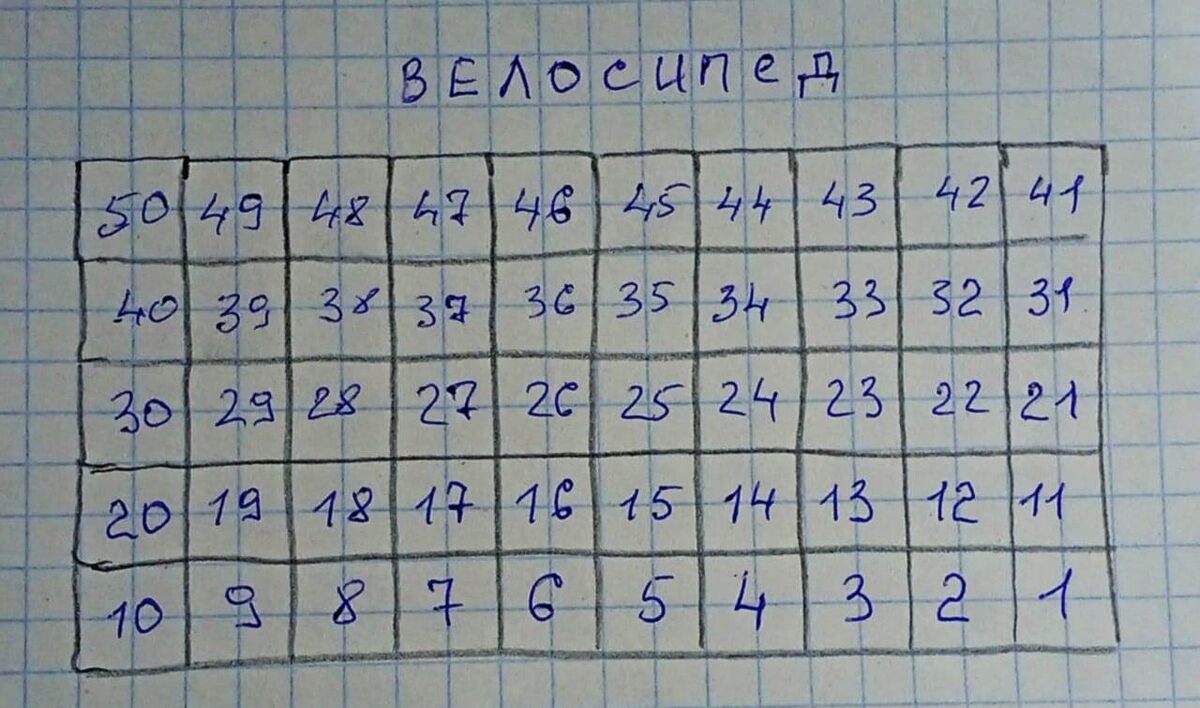 ВЕЛОСИПЕД
50 49 48 47 46 45 44 43 42 41
40 39 38 37 36 35 34 33 32 31
30 29 28 27 26 25 24 23 22 21
20 19 18 17 16 15 14 13 12 11
10 9 8 7 6 5 4 3 2 1